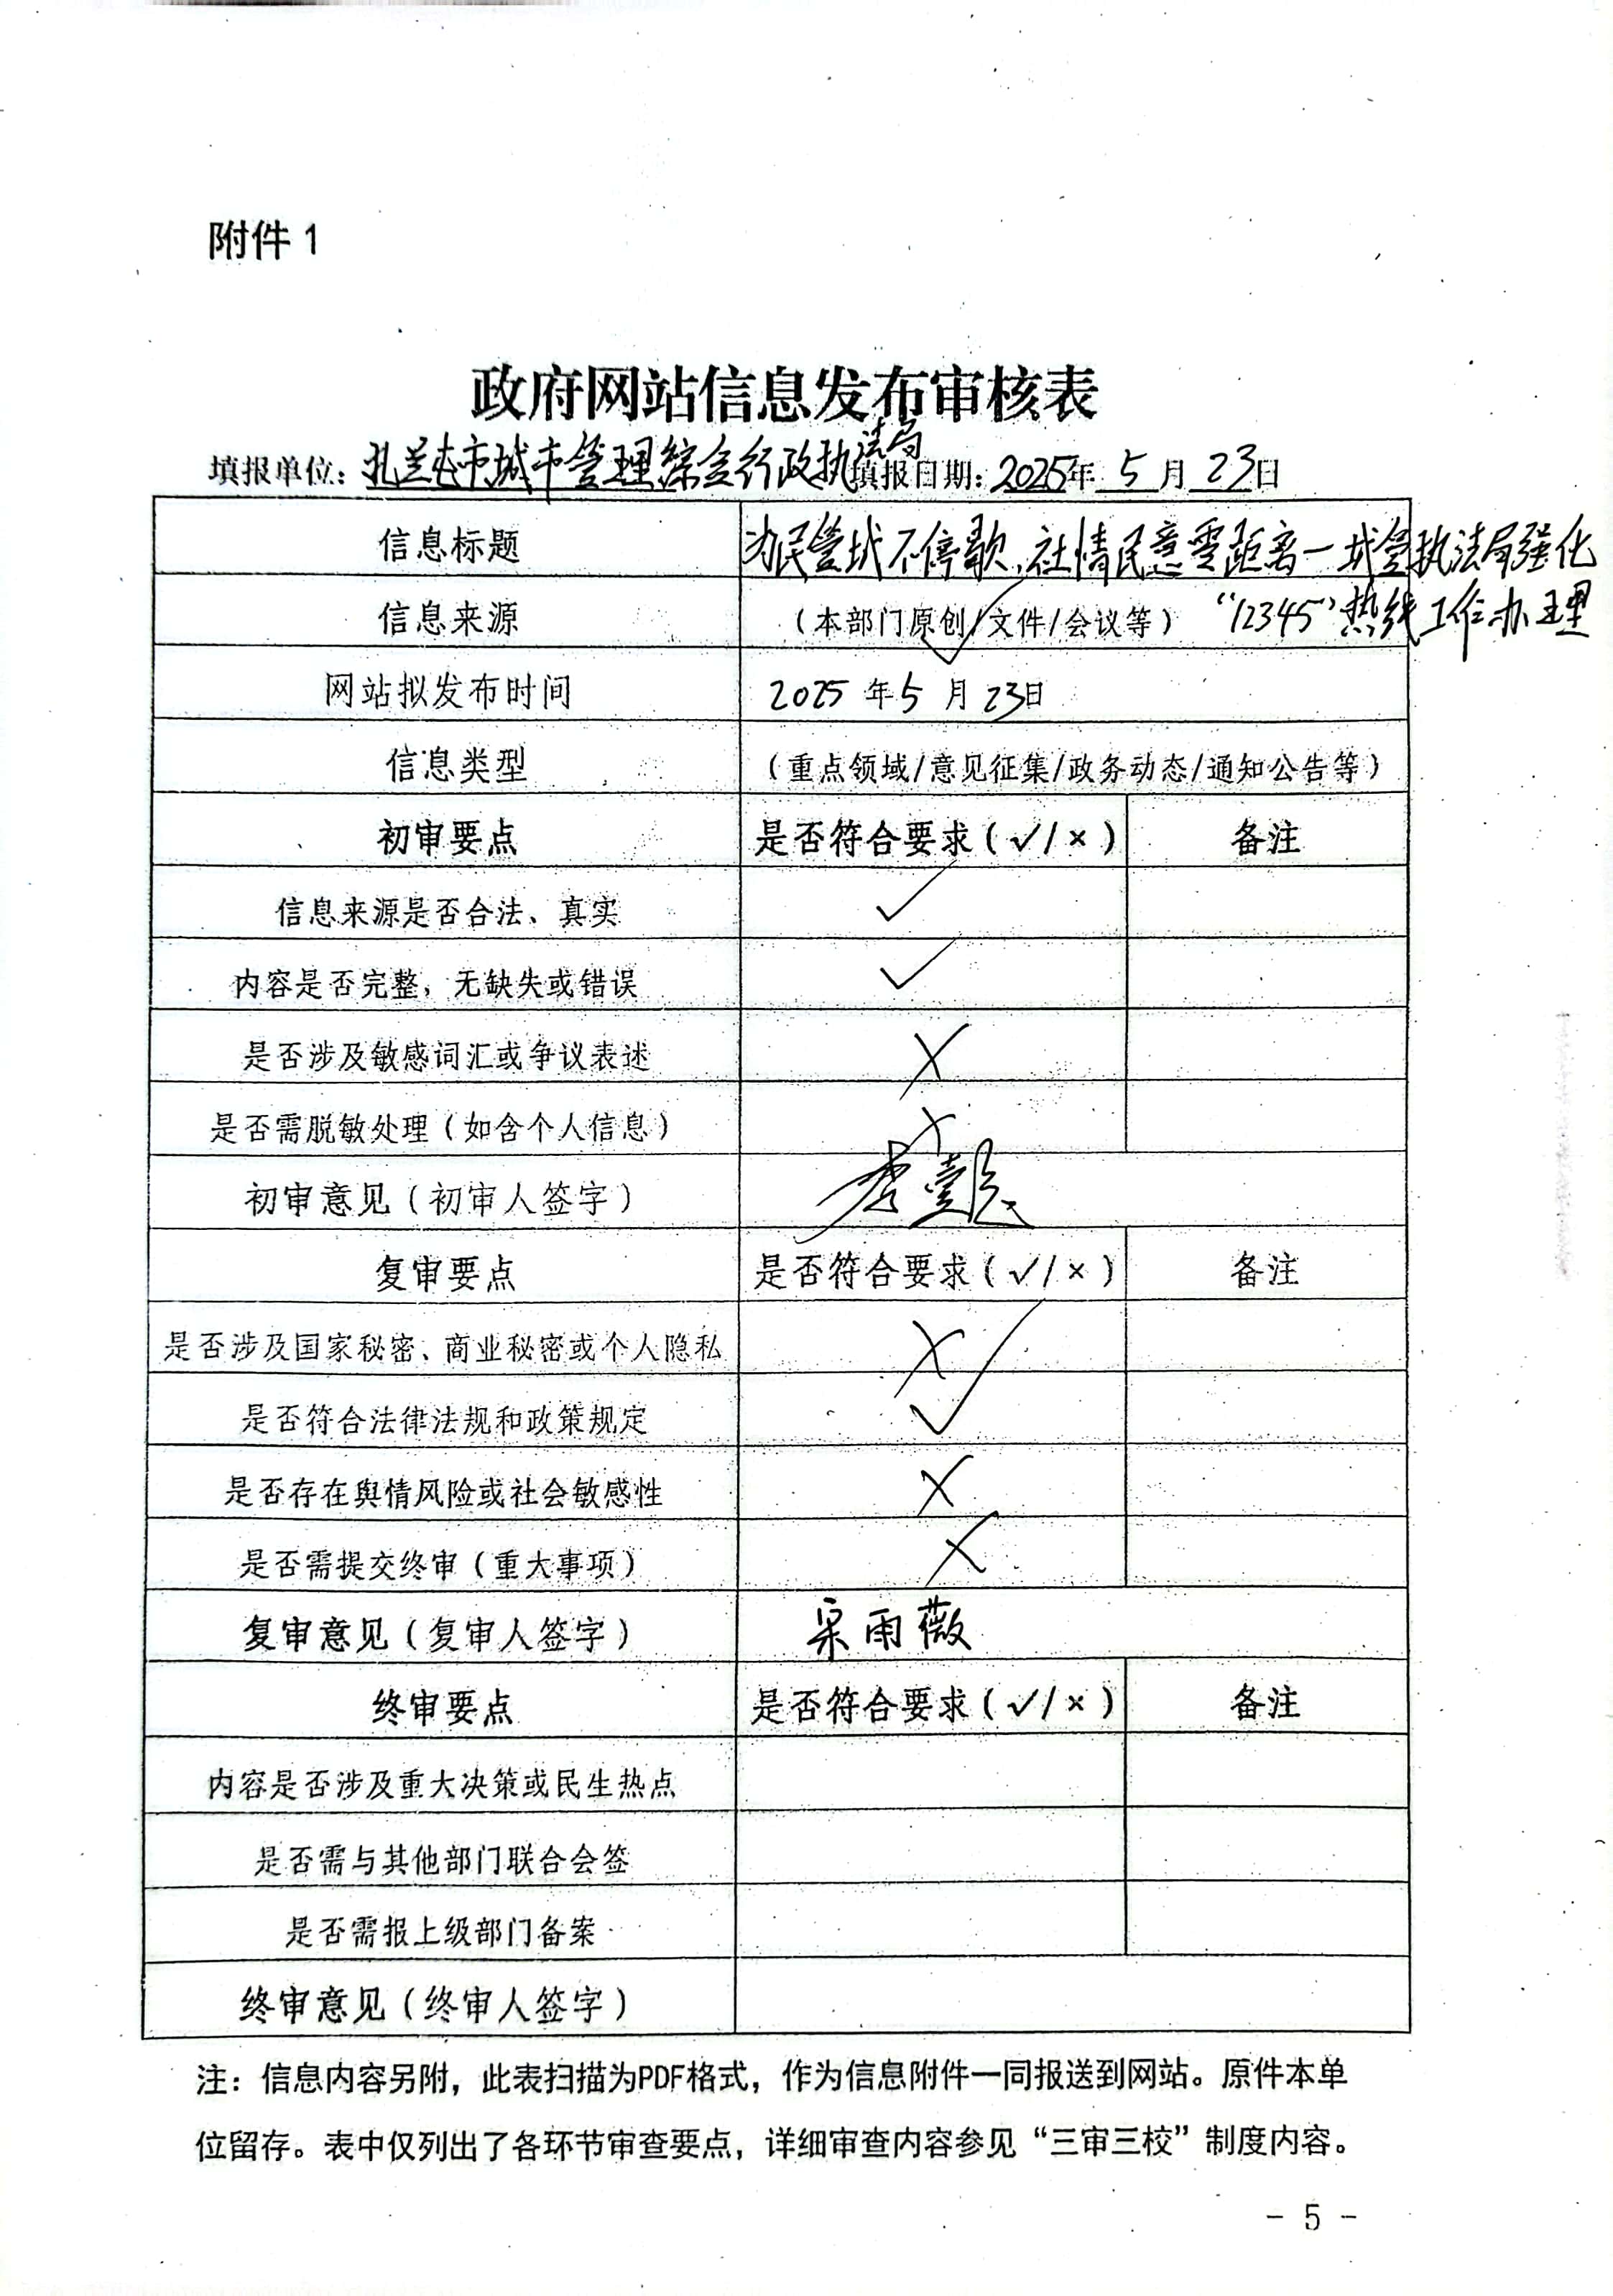 附件1
政府网站信息发布审核表
填报单位：扎兰屯市城市管理综合行政执法局 填报日期：2025年 5 月 23日
信息标题 为民管城不停歇、社情民意零距离—城管执法局强化
“12345”热线工作办理
信息来源 （本部门原创/文件/会议等） ✓
网站拟发布时间 2025 年 5 月 23日
信息类型 （重点领域/意见征集/政务动态/通知公告等）
初审要点 是否符合要求（√/×） 备注
信息来源是否合法、真实 ✓
内容是否完整，无缺失或错误 ✓
是否涉及敏感词汇或争议表述 ×
是否需脱敏处理（如含个人信息） ×
初审意见（初审人签字）
复审要点 是否符合要求（√/×） 备注
是否涉及国家秘密、商业秘密或个人隐私 ×
是否符合法律法规和政策规定 ✓
是否存在舆情风险或社会敏感性 ×
是否需提交终审（重大事项） ×
复审意见（复审人签字） 雨薇
终审要点 是否符合要求（√/×） 备注
内容是否涉及重大决策或民生热点
是否需与其他部门联合会签
是否需报上级部门备案
终审意见（终审人签字）
注：信息内容另附，此表扫描为PDF格式，作为信息附件一同报送到网站。原件本单
位留存。表中仅列出了各环节审查要点，详细审查内容参见“三审三校”制度内容。
- 5 -